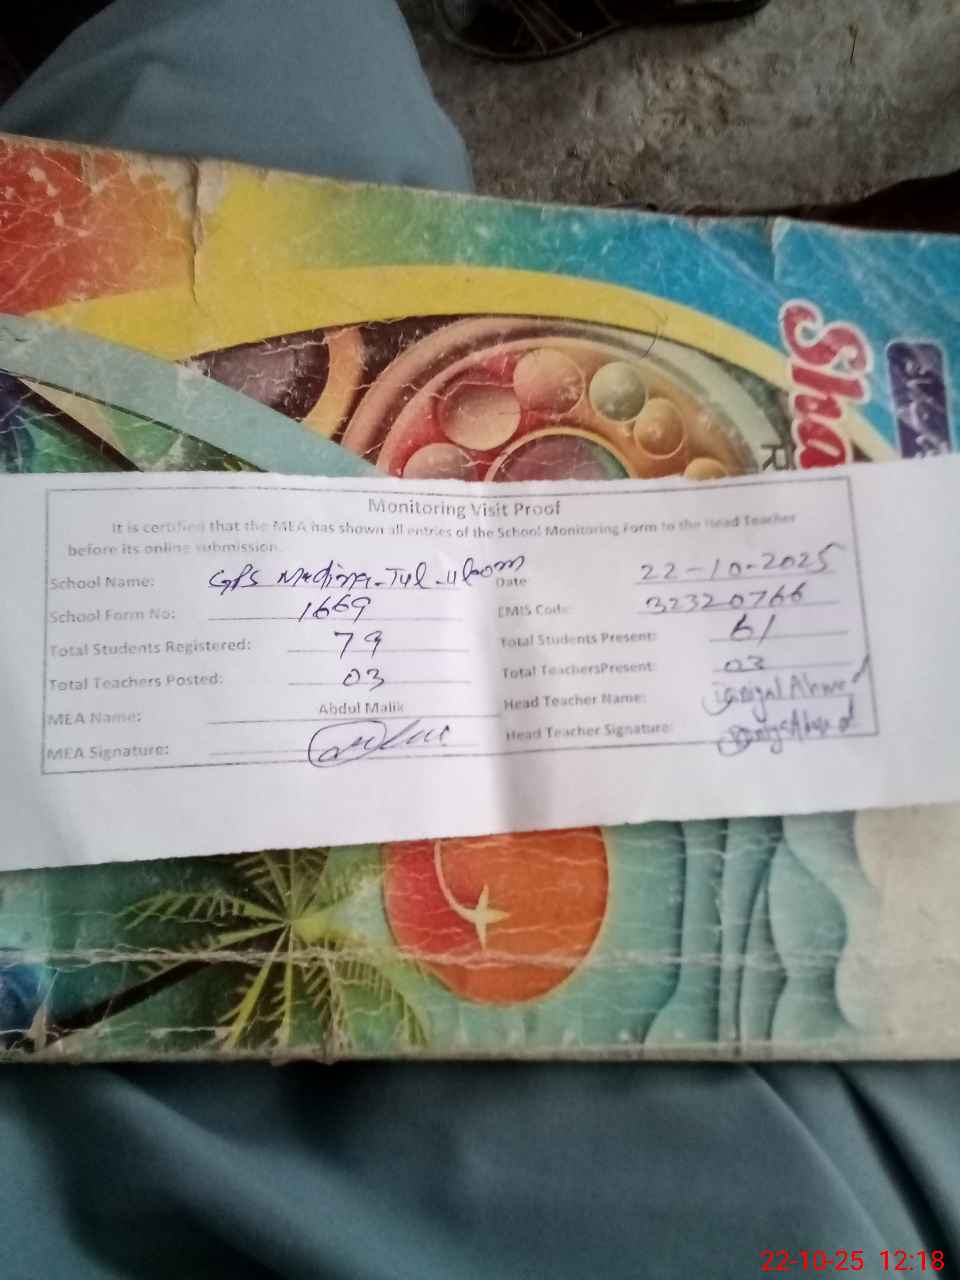 Sha
Monitoring Visit Proof
It is certified that the MEA has shown all entries of the School Monitoring Form to the Head Teacher
before its online submission.
School Name: GPS Madina-Tul-uloom Date 22-10-2025
School Form No: 1669 EMIS Code: 32320766
Total Students Registered: 79 Total Students Present: 61
Total Teachers Posted: 03 Total TeachersPresent: 03
MEA Name: Abdul Malik Head Teacher Name: Ahmed
MEA Signature: Head Teacher Signature:
22-10-25 12:18